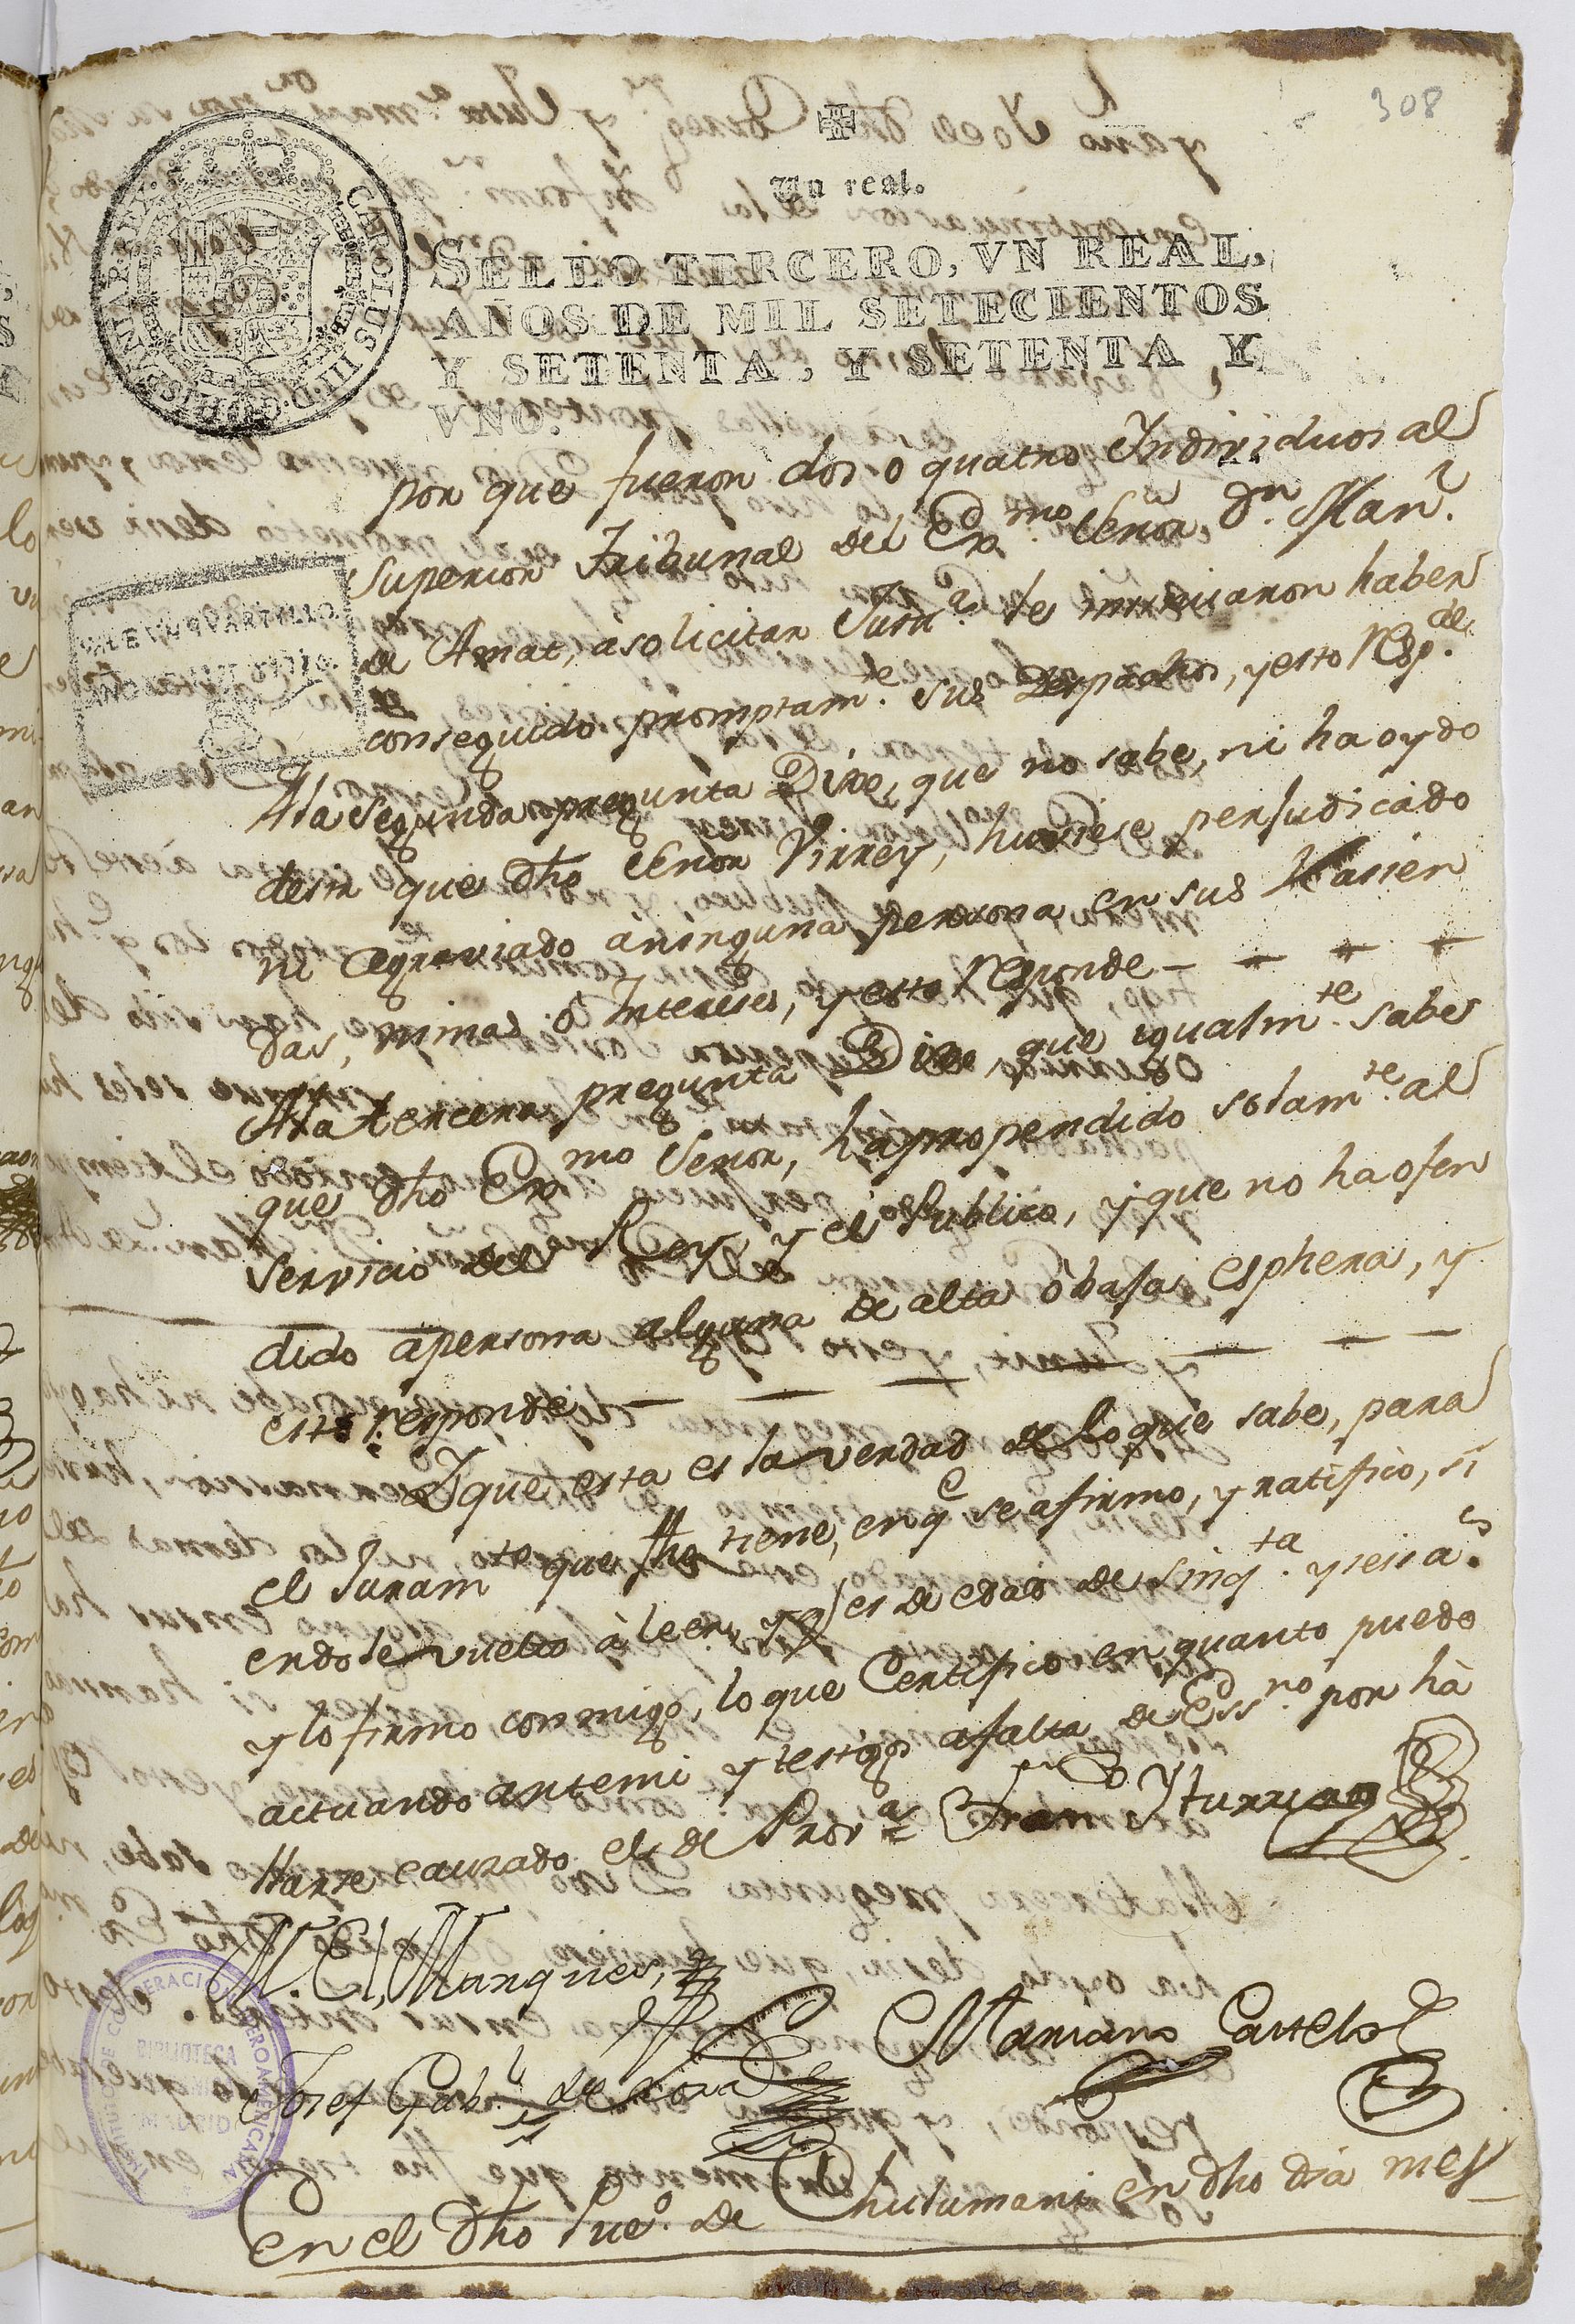 308
Un real.
SELLO TERCERO, VN REAL,
AÑOS DE MIL SETECIENTOS
Y SETENTA, Y SETENTA Y
VNO.
por que fueron dos o quatro Individuos al
Superior Tribunal del Exmo. Señor Dn. Manl.
de Amat, a solicitar Justa. le noticiaron haber
conseguido promptamte. sus Despachos, y esto Respde.
A la Segunda pregunta Dixo, que no sabe, ni ha oydo
desir que dho Señor Virrey, huviese perjudicado
ni agraviado a ninguna persona en sus Hasien
das, minas ò Intereses, y esto Responde
A la tercera pregunta Dixo, que igualmte. sabe
que dho Exmo Señor, hà propendido solamte. al
Servicio del Rey, y el Publico, y que no ha ofen
dido a persona alguna de alta ò baja esphera, y
esto responde
Y que esta es la verdad de lo que sabe, para
el Juramto que fho tiene, en qe se afirmo, y ratifico, si
endole vuelto à leer, y qe es de edad de sinqta. y seis as.
y lo firmo conmigo, lo que Certifico en quanto puedo
actuando ante mi y testigos a falta de Essno. por hà
llarse causado el de Prova
Franco Yturrian
M. El Marques,
Josef Gabl. de Lora
Mariano Castelo
BIBLIOTECA
MADRID
En el dho Pueo. de Chulumani en dho dia mes